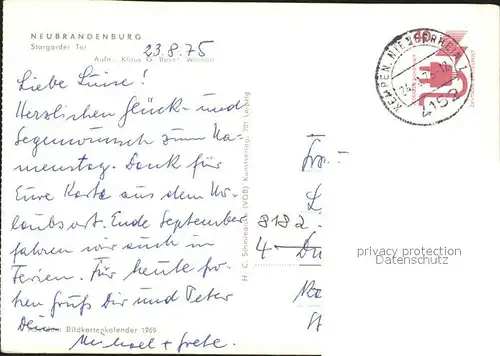 NEUBRANDENBURG
Stargarder Tor
Aufn.: Klaus G. Beyer, Weimar
23.8.75
Liebe Luise!
Herzlichen Glück- und
Segenwunsch zum Na-
menstag. Dank für
Eure Karte aus dem Ur-
laubsort. Ende September
fahren wir auch in
Ferien. Für heute fro-
hen Gruß Dir und Peter
Dein
Michael + Grete.
Bildkartenkalender 1969
H. C. Schmiedicke (VOB) Kunstverlag, 701 Leipzig
KEMPEN, NIEDERRHEIN 1
4152
8182
4
privacy protection
watermark